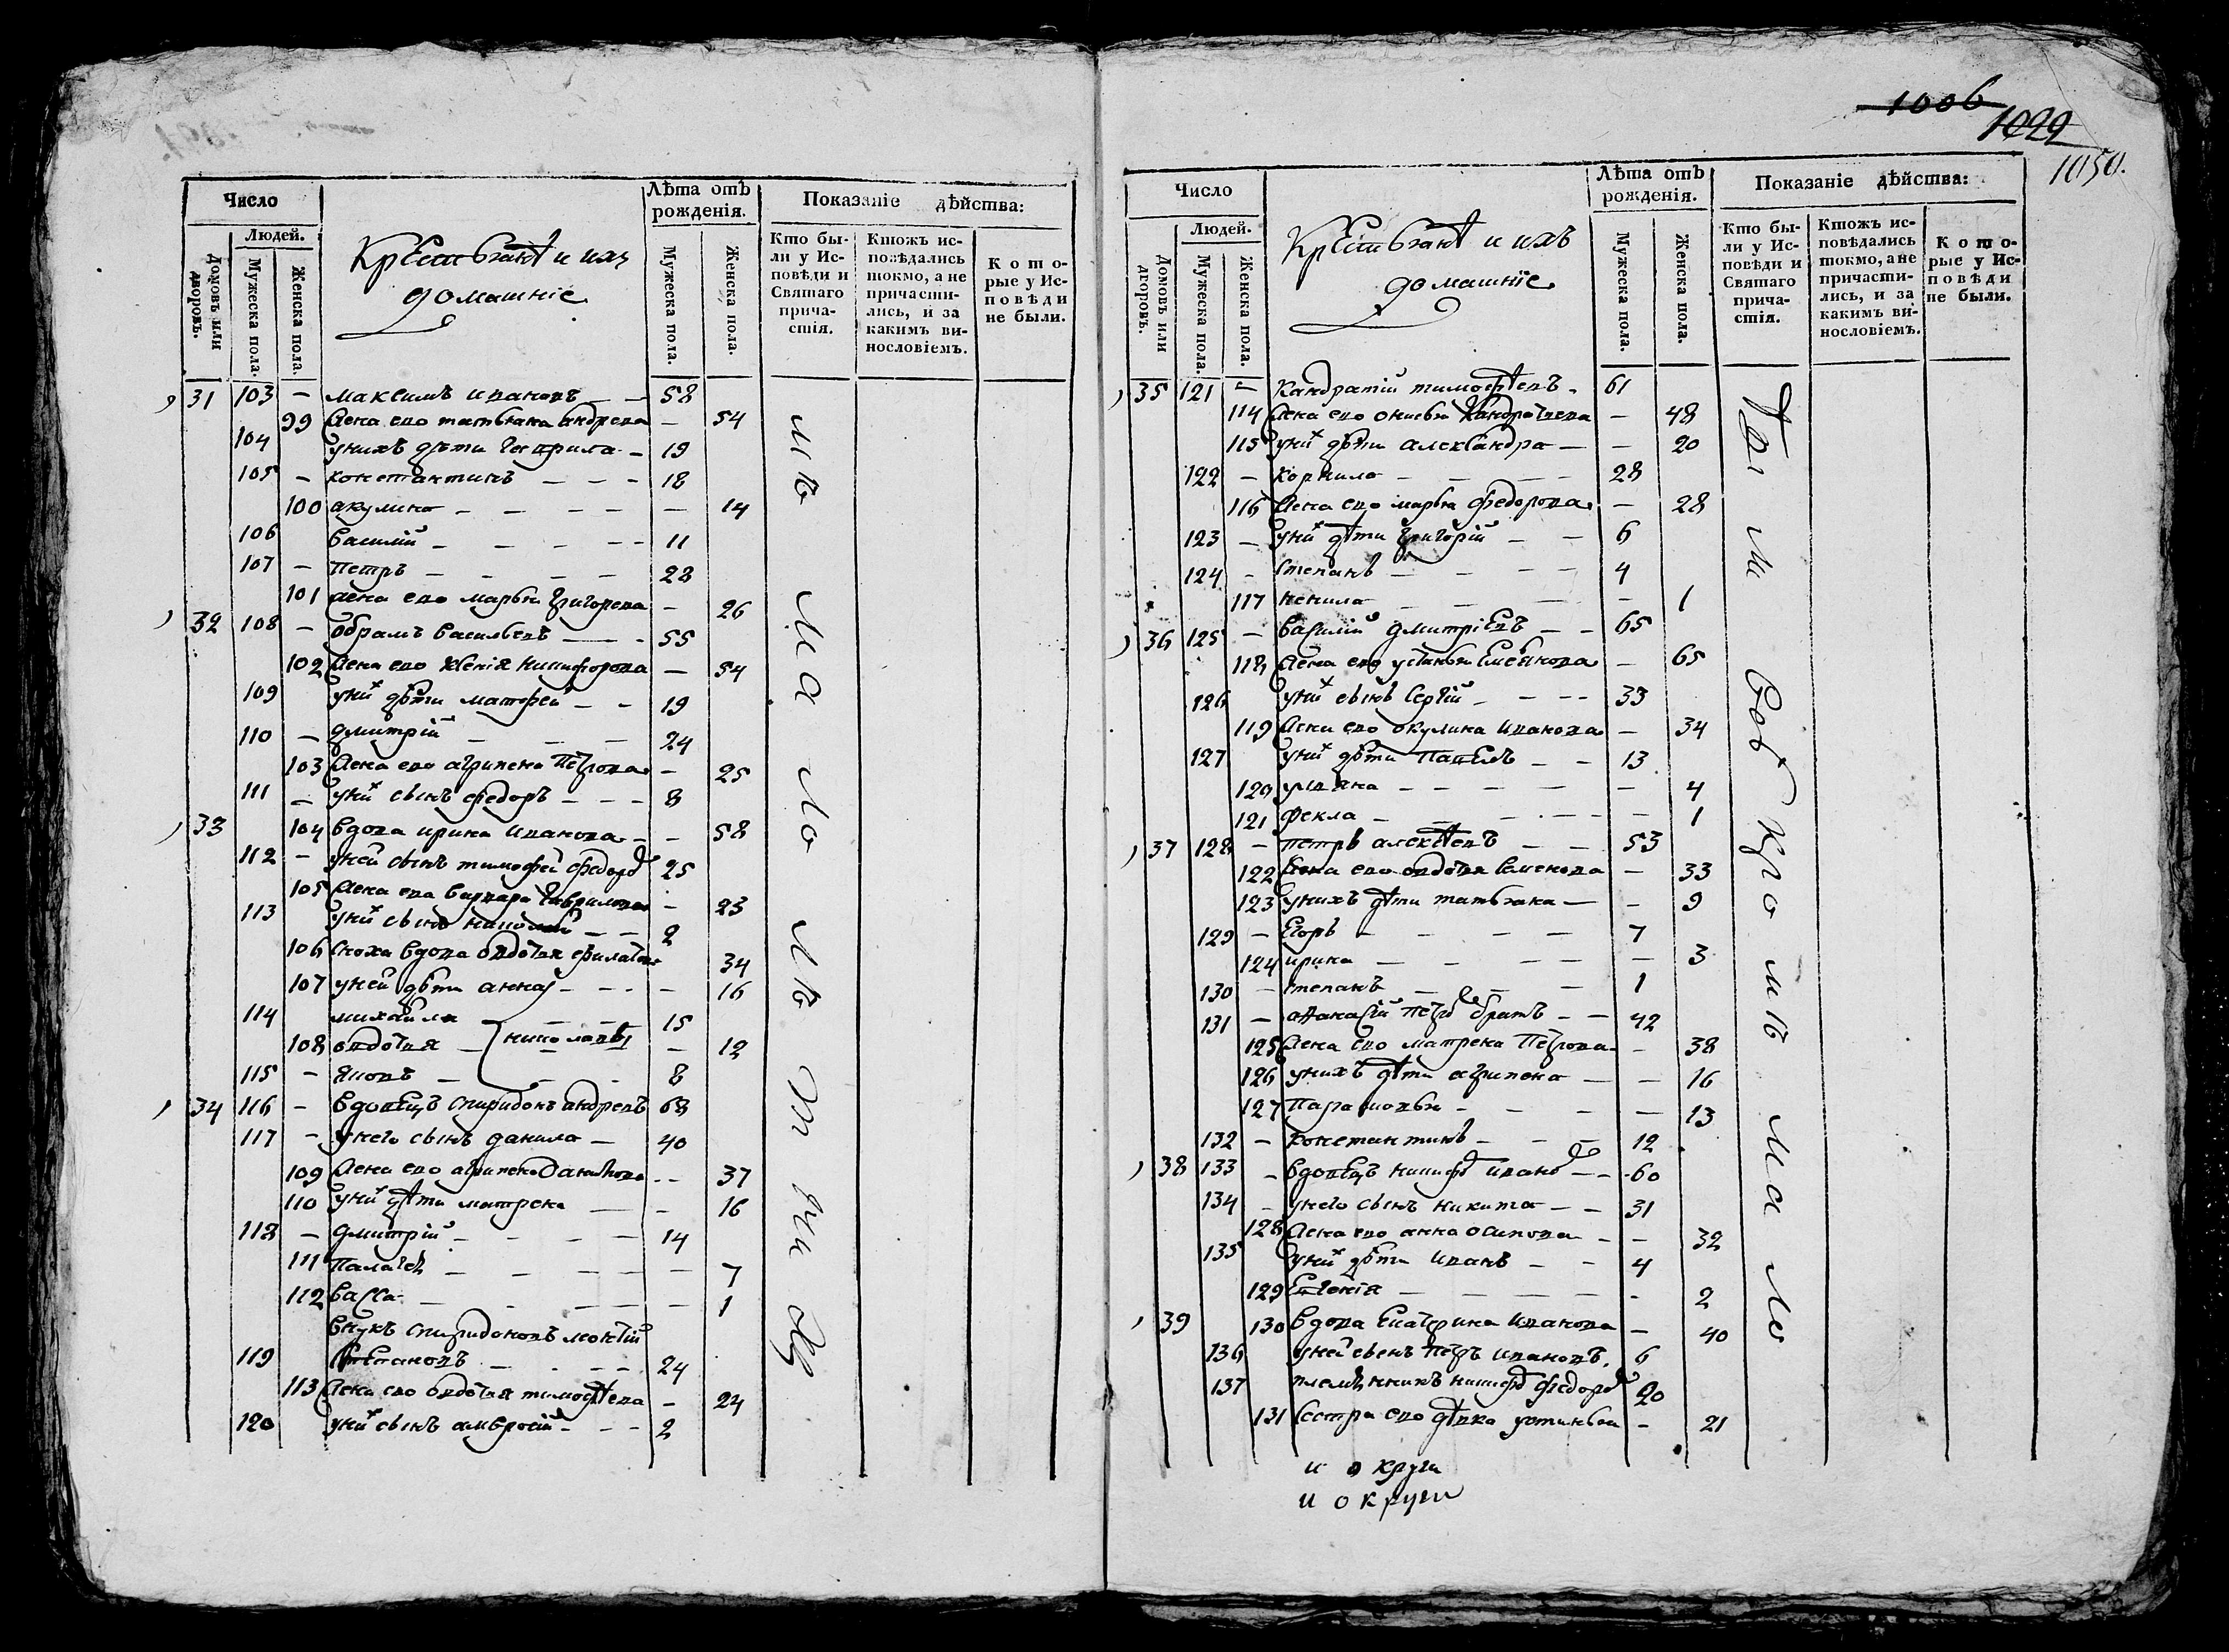 1006
1029
1050.
Число
Людей.
Домовъ или дворовъ.
Мужеска пола.
Женска пола.
Крестьянѣ и ихъ
домашніе
Лѣта отъ рожденія.
Мужеска пола.
Женска пола.
Показаніе дѣйства:
Кто были у Исповѣди и Святаго причастія.
Ктожъ исповѣдались токмо, а не причастились, и за какимъ винословіемъ.
Которые у Исповѣди не были.
31 103 — максимъ ивановъ — — 58
99 Жена ево татьяна андреева — 54
104 у нихъ дѣти гаврила — 19
105 — константинъ — — — 18
100 акулина — — — — — 14
106 василій — — — — — 11
107 — Петръ — — — — 28
101 жена ево марья григорева — 26
32 108 — обрамъ васильевъ — — 55
102 Жена ево ксенія никифорова — 54
109 у них дѣти матфей — — 19
110 — дмитрій — — — 24
103 Жена ево агрипена Петрова — 25
111 — у них сынъ федоръ — — — 8
33 104 вдова ирина иванова — — 58
112 — у ней сынъ тимофей федоро 25
105 Жена ево варвара гаврилова — 23
113 у них сынъ николай — — 2
106 сноха вдова овдотья филатова 34
107 у ней дѣти анна — — — — 16
114 михайла — — — 15
108 овдотья — николаевы — 12
115 — яковъ — — — 8
34 116 — вдовецъ спиридонъ андреевъ 68
117 — у него сынъ данила — 40
109 Жена ево агрипена данилова — — 37
110 у них дѣти матрена — — 16
118 — дмитрій — — — — 14
111 Палагея — — — — — 7
112 васса — — — — — 1
внукъ спиридоновъ мокій
119 степановъ — — — — 24
113 Жена ево овдотья тимофѣева — 24
120 у них сынъ амвросій — — — 2
Число
Людей.
Домовъ или дворовъ.
Мужеска пола.
Женска пола.
Крестьянѣ и ихъ
домашніе
Лѣта отъ рожденія.
Мужеска пола.
Женска пола.
Показаніе дѣйства:
Кто были у Исповѣди и Святаго причастія.
Ктожъ исповѣдались токмо, а не причастились, и за какимъ винословіемъ.
Которые у Исповѣди не были.
35 121 — Кандратій тимофѣевъ — 61
114 Жена ево Кандратьева — 48
115 у них дѣти александра — — 20
122 — корнила — — — — 28
116 Жена ево марья федорова — 28
123 — у них дѣти григорій — — 6
124 — степанъ — — — — 4
117 ненила — — — — 1
36 125 — василій дмитріевъ — — 65
118 Жена ево устинья — 65
126 у них сынъ сергій — — — — 33
119 Жена ево окулина иванова — 34
127 у них дѣти Павелъ — — 13
120 ульяна — — — — — 4
121 фекла — — — — — 1
37 128 — Петръ алексѣевъ — — 53
122 Жена ево овдотья семенова — 33
123 у нихъ дѣти татьяна — — 9
129 — Егоръ — — — — 7
124 ирина — — — — — 3
130 — степанъ — — — 1
131 — афанасій Петро братъ — — 42
125 Жена ево матрена Петрова — 38
126 у нихъ дѣти агрипена — — 16
127 Парасковья — — — — 13
132 — константинъ — — — 12
38 133 — вдовецъ никиф ивано — — 60
134 — у него сынъ никита — — 31
128 Жена ево анна осипова — — 32
135 у них дѣти иванъ — — 4
129 Евгенія — — — — — 2
39 130 вдова Екатерина иванова — 40
136 у ней сынъ Петръ ивановъ. 6
137 племянникъ никиф федоро 20
131 сестра ево дѣвка устинья — 21